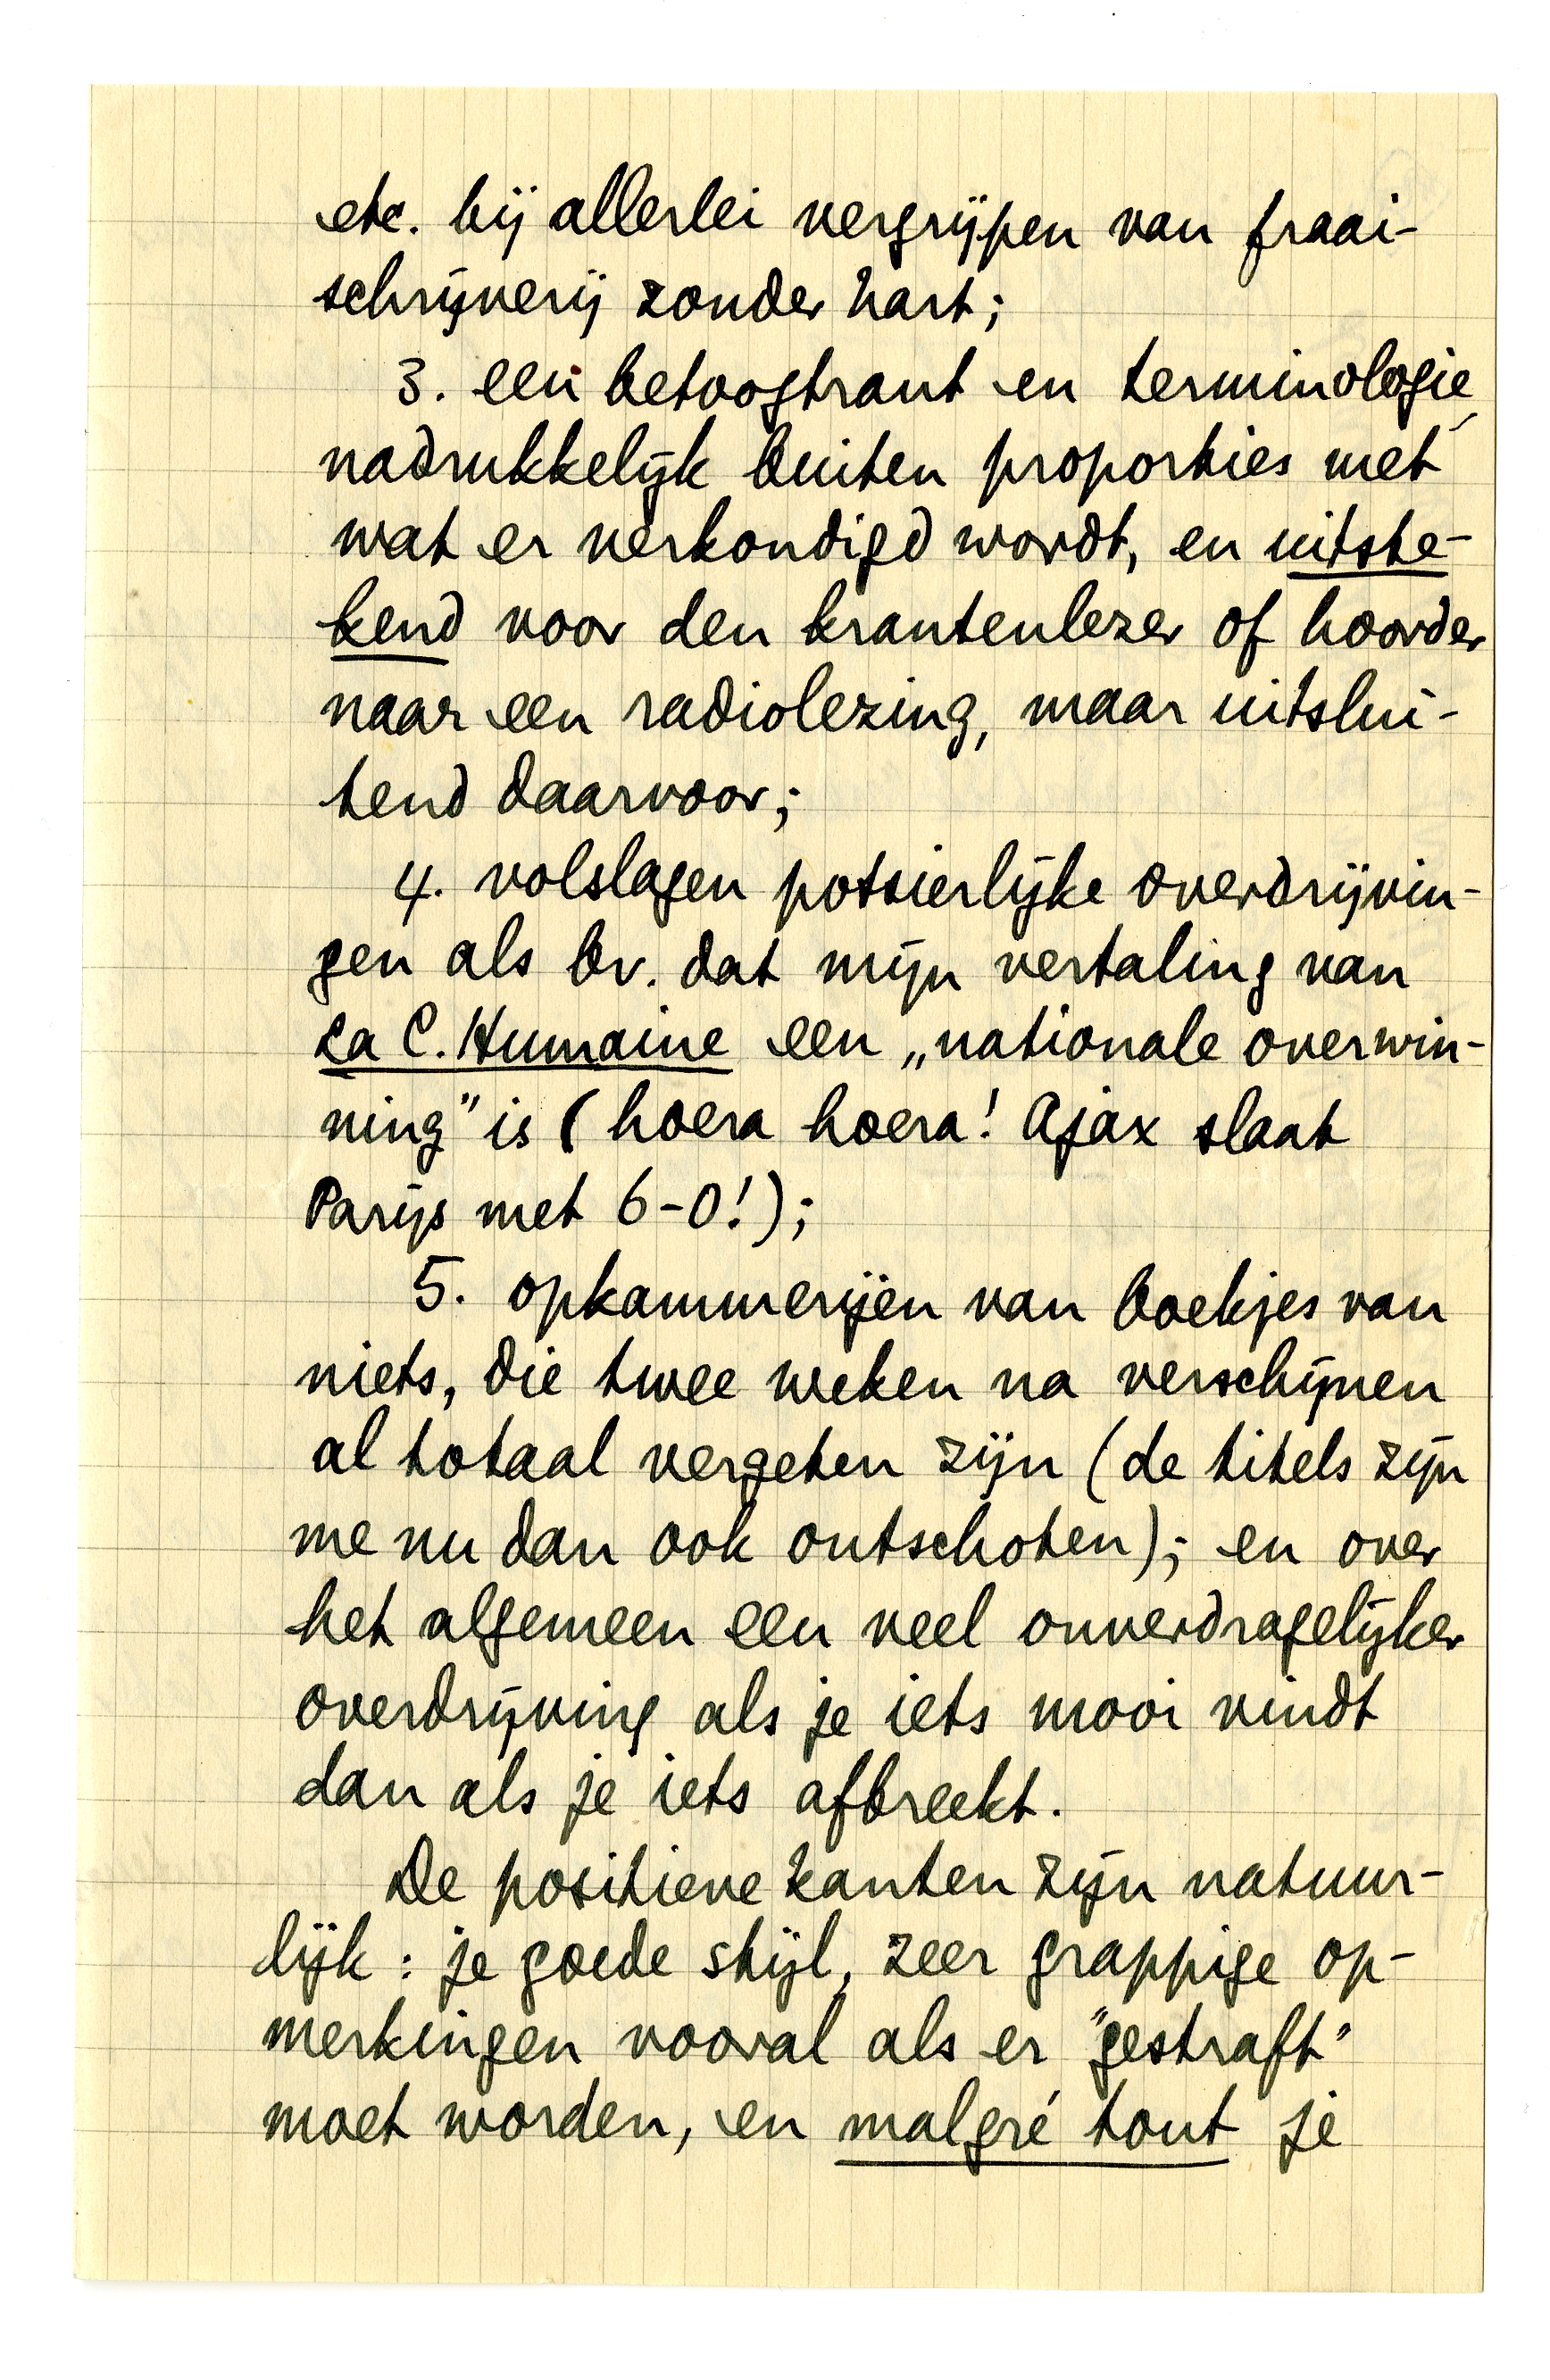 etc. bij allerlei vergrijpen van fraai-
schrijverij zonder hart;
3. een betoogtrant en terminologie,
nadrukkelijk buiten proporties met
wat er verkondigd wordt, en uitste-
kend voor den krantenlezer of hoorder
naar een radiolezing, maar uitslui-
tend daarvoor;
4. volslagen potsierlijke overdrijvin-
gen als bv. dat mijn vertaling van
La C. Humaine een „nationale overwin-
ning” is (hoera hoera! Ajax slaat
Parijs met 6-0!);
5. opkammerijen van boekjes van
niets, die twee weken na verschijnen
al totaal vergeten zijn (de titels zijn
me nu dan ook ontschoten); en over
het algemeen een veel onverdragelijker
overdrijving als je iets mooi vindt
dan als je iets afbreekt.
De positieve kanten zijn natuur-
lijk: je goede stijl, zeer grappige op-
merkingen vooral als er "gestraft"
moet worden, en malgré tout je